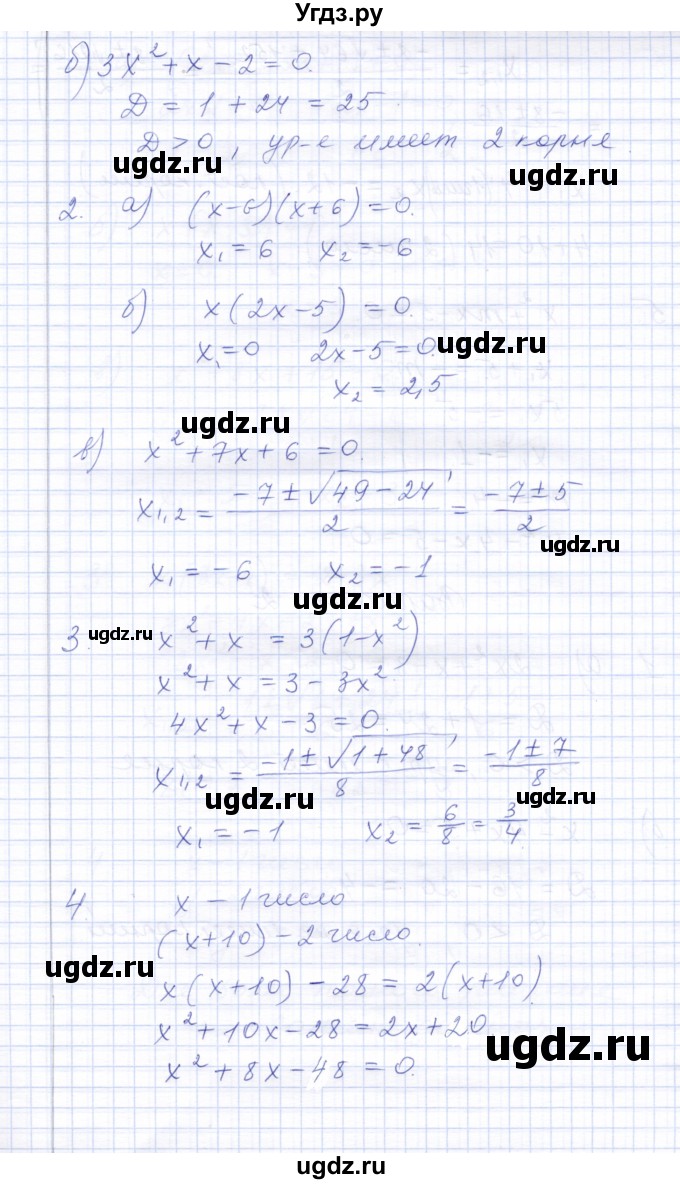 Угдз.ру
б) 3x² + x - 2 = 0.
Д = 1 + 24 = 25.
Д > 0, ур-е имеет 2 корня.
ugdz.ru
2. а) (x-6)(x+6) = 0.
x₁ = 6 x₂ = -6
ugdz.ru
б) x(2x-5) = 0.
x₁ = 0 2x-5 = 0. ugdz.ru
x₂ = 2,5
ugdz.ru
в) x² + 7x + 6 = 0.
x₁,₂ = (-7 ± √(49-24))/2 = (-7 ± 5)/2
ugdz.ru
x₁ = -6 x₂ = -1
ugdz.ru
3. ugdz.ru x² + x = 3(1-x²)
x² + x = 3 - 3x².
4x² + x - 3 = 0.
x₁,₂ = (-1 ± √(1+48))/8 = (-1 ± 7)/8
ugdz.ru ugdz.ru
x₁ = -1 x₂ = 6/8 = 3/4
4. x - 1 число
(x+10) - 2 число.
ugdz.ru
x(x+10) - 28 = 2(x+10)
x² + 10x - 28 = 2x + 20
ugdz.ru
x² + 8x - 48 = 0.
ugdz.ru